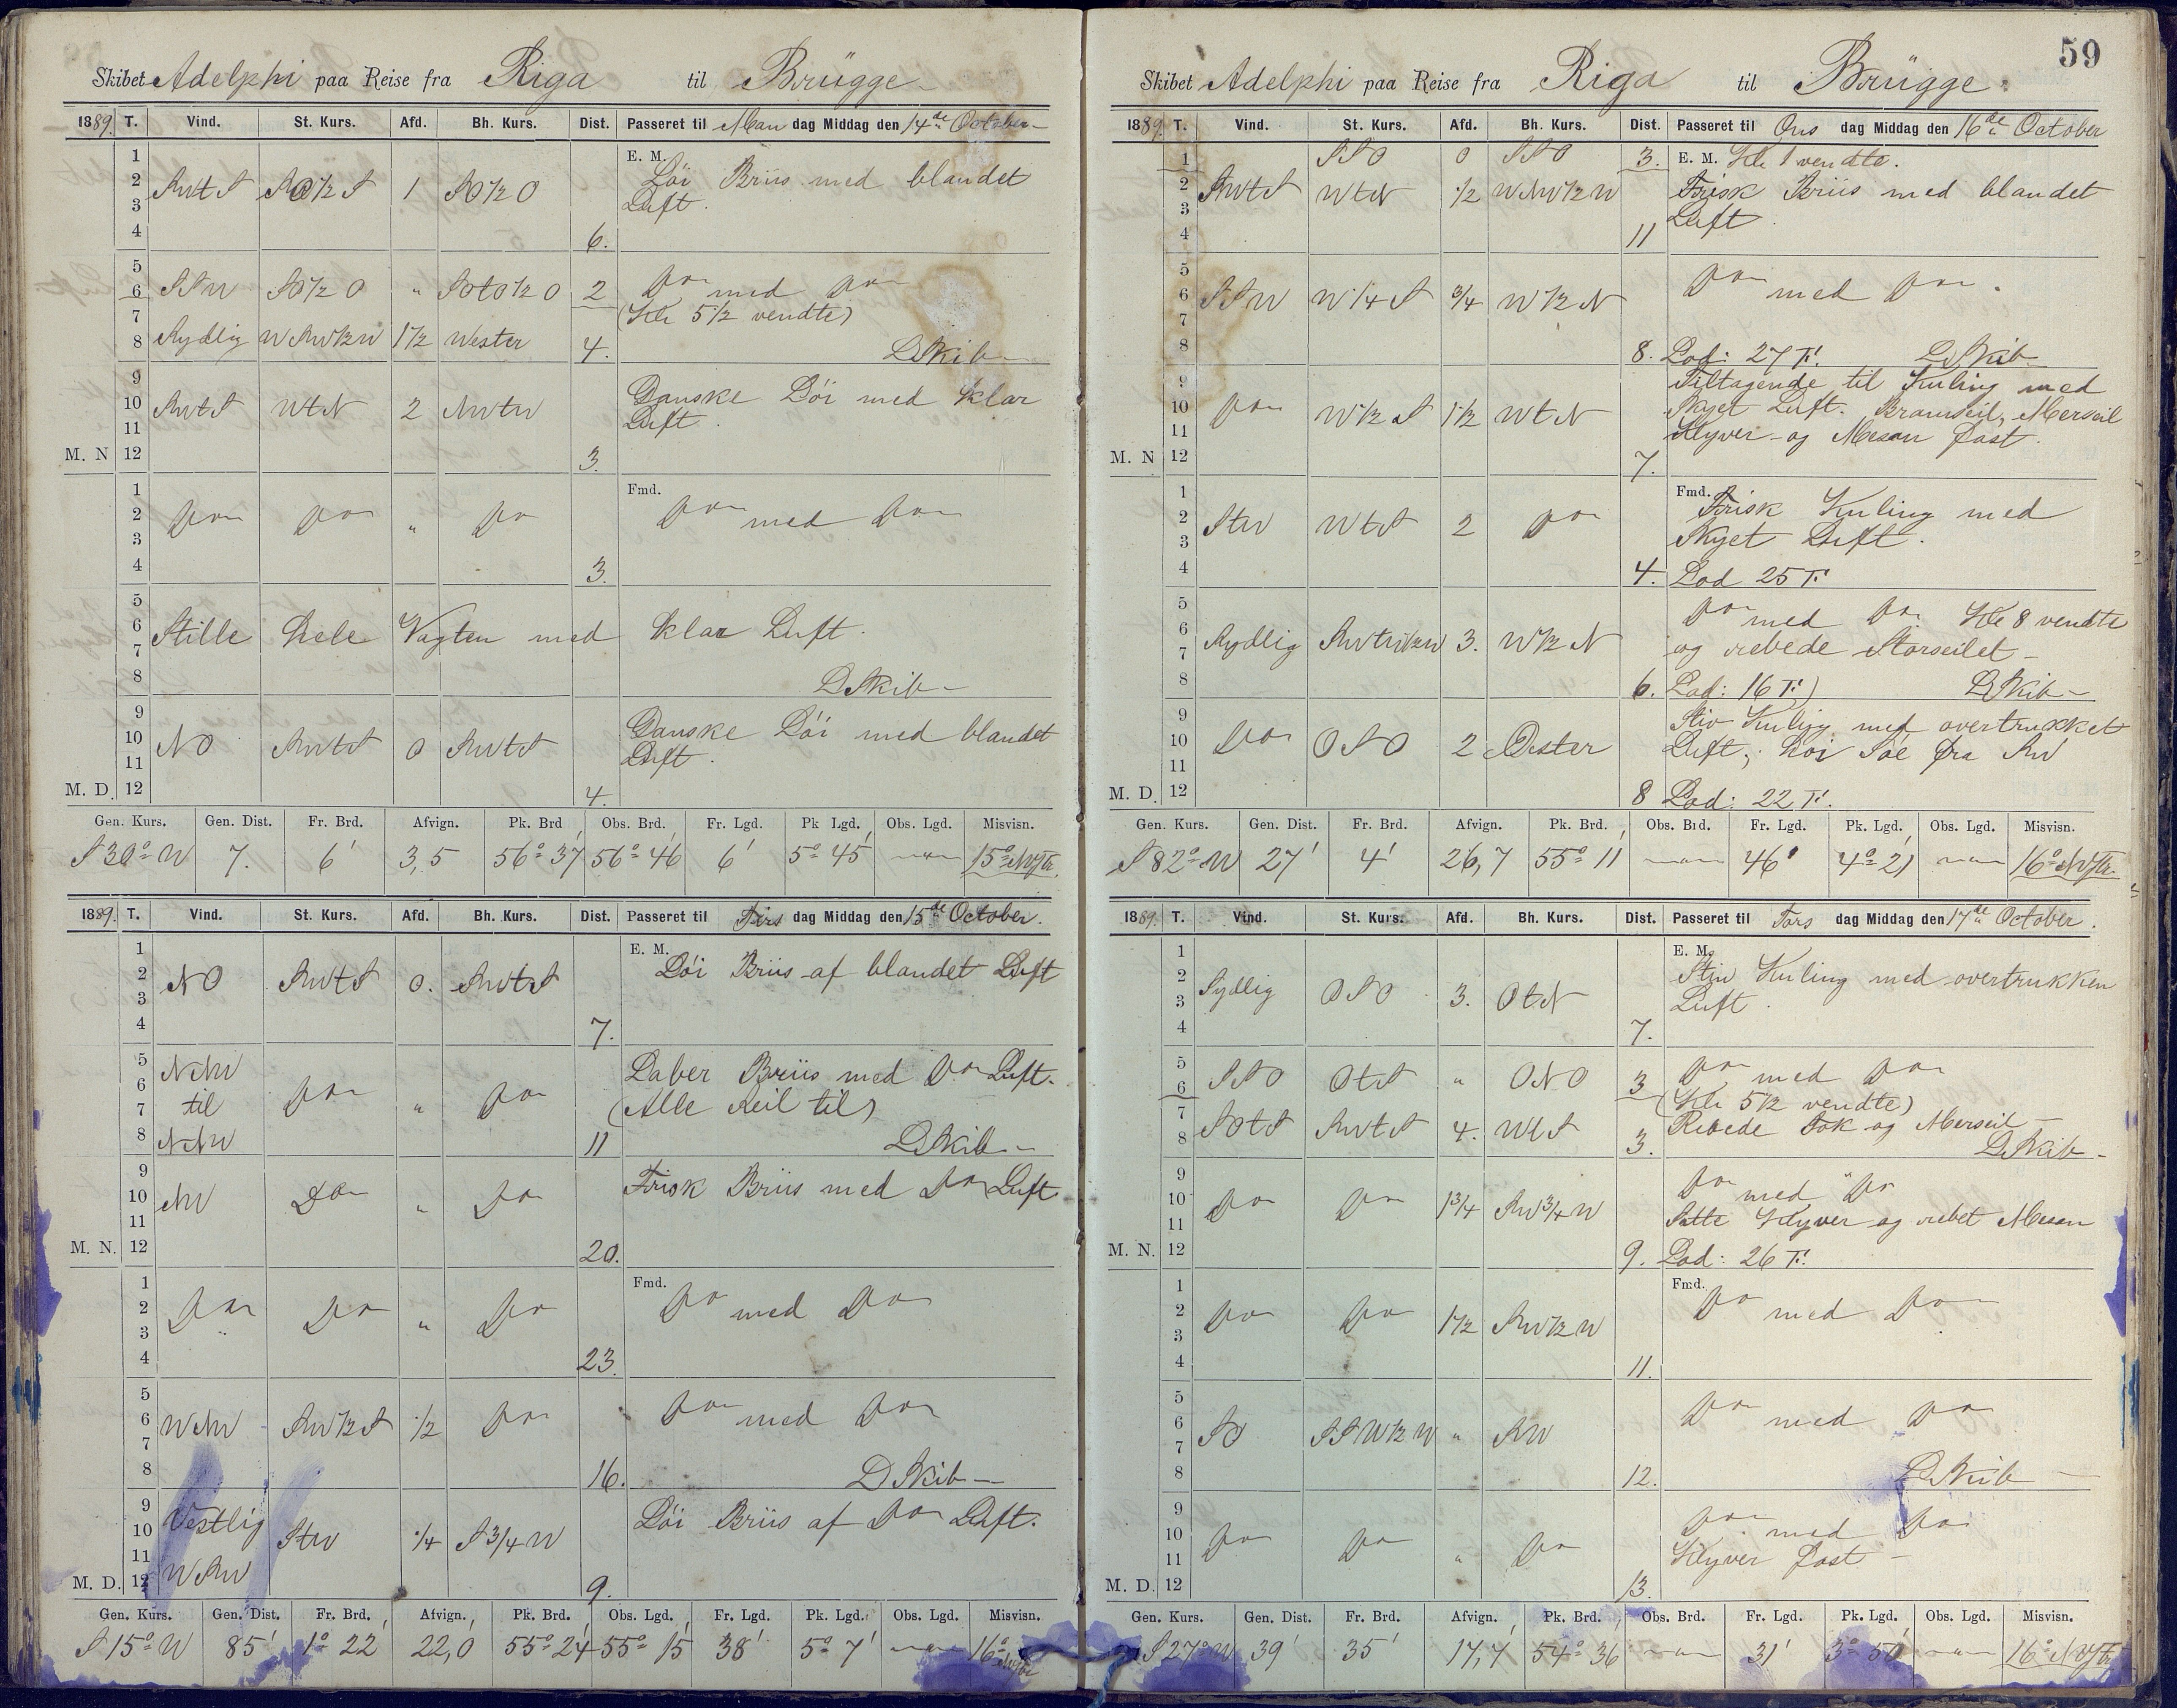 Skibet Adelphi paa Reise fra Riga til Brügge
1889. T. Vind. St. Kurs. Afd. Bh. Kurs. Dist. Passeret til Man dag Middag den 14de October
1
2
3
4
SWtS SO½S 1 SO½O 6.
E. M. Løi Briis med blandet
Luft.
5
6
7
8
SSW SO½O " SOtO½O 2 Do med Do
(Kl 5½ vendte)
Sydlig WSW½W 1½ Wester 4. DSkib
9
10
11
M. N 12
SWtS WtN 2 NWtW 3.
Danske Løi med klar
Luft.
1
2
3
4
Do Do " Do 3.
Fmd. Do med Do
5
6
7
8
Stille hele Vagten med klar Luft.
DSkib
9
10
11
M. D. 12
NO SWtS 0 SWtS 4.
Danske Løi med blandet
Luft.
Gen. Kurs. Gen. Dist. Fr. Brd. Afvign. Pk. Brd Obs. Brd. Fr. Lgd. Pk Lgd. Obs. Lgd. Misvisn.
S 30° W 7. 6' 3,5 56° 37' 56° 46' 6' 5° 45' 15° NVstr.
1889. T. Vind. St. Kurs. Afd. Bh. Kurs. Dist. Passeret til Tirs dag Middag den 15de October.
1
2
3
4
NO SWtS 0. SWtS 7.
E. M. Løi Briis af blandet Luft
5
6
7
8
NNW
til
NNW
Do " Do 11
Laber Briis med Do Luft.
(Alle Seil til)
DSkib
9
10
11
M. N. 12
NW Do " Do 20.
Frisk Briis med Do Luft
1
2
3
4
Do Do " Do 23.
Fmd. Do med Do
5
6
7
8
WNW SW½S ½ Do 16.
Do med Do
D Skib
9
10
11
M. D. 12
Vestlig
WSW
StW ¼ S¾W 9.
Løi Briis af Do Luft.
Gen. Kurs. Gen. Dist. Fr. Brd. Afvign. Pk. Brd. Obs. Lgd. Fr. Lgd. Pk. Lgd. Obs. Lgd. Misvisn.
S 15° W 85' 1° 22' 22,0 55° 24' 55° 15' 38' 5° 7' 16° NVstr
59
Skibet Adelphi paa Reise fra Riga til Brügge.
1889. T. Vind. St. Kurs. Afd. Bh. Kurs. Dist. Passeret til Ons dag Middag den 16de October
1
2
3
4
SSO 0 SSO 3. E. M. Kl 1 vendte.
SWtS WtN ½ WNW½W 11
Frisk Briis med blandet
Luft.
5
6
7
8
SSW W¼S ¾ W½N 8.
Do med Do.
Lod: 27 F. DSkib
9
10
11
M. N 12
Do W½S 1½ WtN 7.
Tiltagende til Kuling med
Skyet Luft. Bramseil, Merseil
Klyver og Mesan fast.
1
2
3
4
StW WtS 2 Do 4.
Fmd. Frisk Kuling med
Skyet Luft.
Lod 25 F.
5
6
7
8
Sydlig SWtW½W 3. W½N 6.
Do med Do. Kl 8 vendte
og rebede Storseilet
Lod: 16 F.) DSkib
9
10
11
M. D. 12
Do OSO 2 Oster 8
Stiv Kuling med overtrukket
Luft; høi Søe fra SW
Lod: 22 F.
Gen. Kurs. Gen. Dist. Fr. Brd. Afvign. Pk. Brd. Obs. Brd. Fr. Lgd. Pk. Lgd. Obs. Lgd. Misvisn.
S 82° W 27' 4' 26,7 55° 11' 46' 4° 21' 16° NVstr.
1889. T. Vind. St. Kurs. Afd. Bh. Kurs. Dist. Passeret til Tors dag Middag den 17de October.
1
2
3
4
Sydlig OSO 3. OtN 7.
E. M. Stiv Kuling med overtrukken
Luft.
5
6
7
8
SSO OtS " ONO 3 Do med Do
(Kl 5½ vendte)
SOtS SWtS 4. WtS 3. Rebede Fok og Merseil
DSkib
9
10
11
M. N. 12
Do Do 1¾ SW¾W 9.
Do med Do
Satte Klyver og rebet Mesan
Lod: 26 F.
1
2
3
4
Do Do 1½ SW½W 11.
Fmd. Do med Do
5
6
7
8
SO SSW½W " SW 12.
Do med Do
DSkib
9
10
11
M. D. 12
Do Do " Do 13.
Do med Do
Klyver fast
Gen. Kurs. Gen. Dist. Fr. Brd. Afvign. Pk. Brd. Obs. Brd. Fr. Lgd. Pk. Lgd. Obs. Lgd. Misvisn.
S 27° W 39' 35' 17,7 54° 36' 31' 3° 50' 16° NVstr.